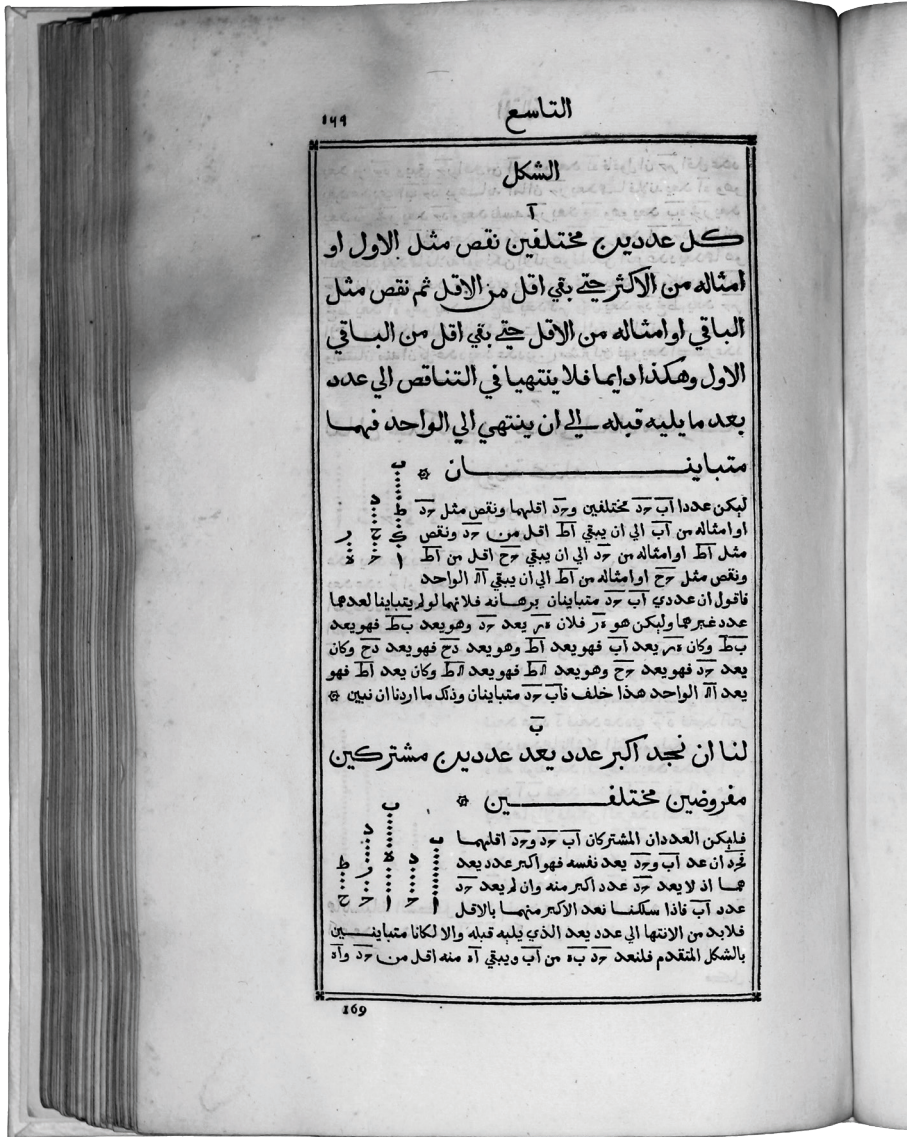 التاسع
١٦٩
الشكل
آ
كل عددين مختلفين نقص مثل الاول او
امثاله من الاكثر حتي بقي اقل من الاقل ثم نقص مثل
الباقي او امثاله من الاقل حتي بقي اقل من الباقي
الاول وهكذا دايما فلا ينتهيا في التناقص الي عدد
بعد ما يليه قبله الي ان ينتهي الي الواحد فهما
متباينان
ليكن عددا آب حد مختلفين وحد اقلهما ونقص مثل حد
او امثاله من آب الي ان يبقي آط اقل من حد ونقص
مثل آط او امثاله من حد الي ان يبقي حح اقل من آط
ونقص مثل حح او امثاله من آط الي ان يبقي آك الواحد
فاقول ان عددي آب حد متباينان برهانه فلانهما لو لم يتباينا لعدهما
عدد غيرهما وليكن هو ةر فلان ةر يعد حد وهو يعد بط فهو يعد
بط وكان ةر يعد آب فهو يعد آط وهو يعد دح فهو يعد دح وكان
يعد حد فهو يعد حح وهو يعد كط فهو يعد كط وكان يعد آط فهو
يعد آك الواحد هذا خلف فآب حد متباينان وذلك ما اردنا ان نبين
ب
لنا ان نجد اكبر عدد يعد عددين مشتركين
مفروضين مختلفين
فليكن العددان المشتركان آب حد وحد اقلهما
نجد ان عد آب وحد يعد نفسه فهو اكبر عدد يعد
هما اذ لا يعد حد عدد اكبر منه وان لم يعد حد
عدد آب فاذا سلكنا نعد الاكبر منهما بالاقل
فلابد من الانتها الي عدد يعد الذي يليه قبله والا لكانا متباينين
بالشكل المتقدم فلنعد حد به من آب ويبقي آه منه اقل من حد وآه
169